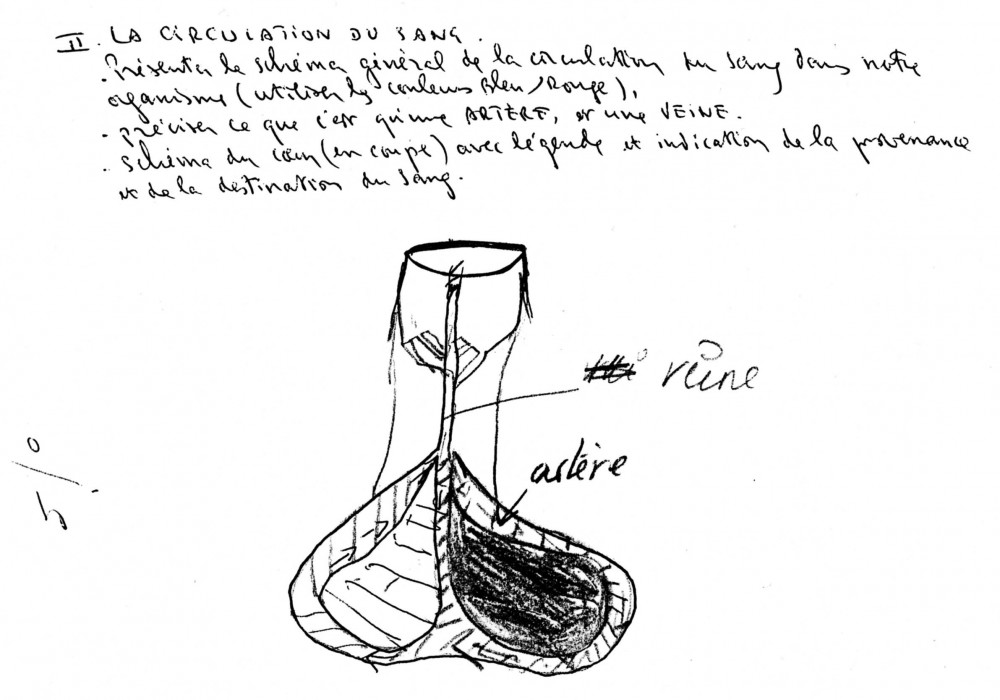 II. LA CIRCULATION DU SANG.
. Présenter le schéma général de la circulation du sang dans notre
organisme (utiliser les couleurs Bleu/Rouge),
. préciser ce que c'est qu'une ARTÈRE, et une VEINE.
. schéma du cœur (en coupe) avec légende et indication de la provenance
et de la destination du sang.
veine
artère
0
5